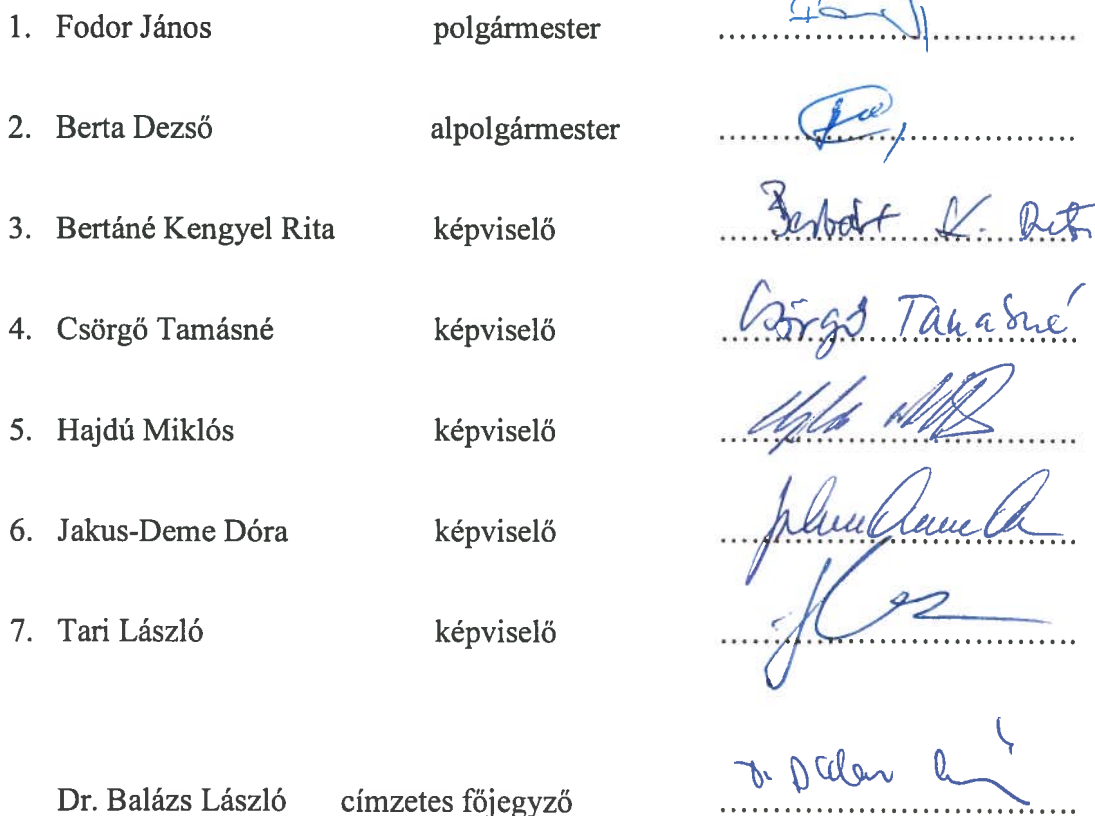 1. Fodor János polgármester ........................
2. Berta Dezső alpolgármester ........................
3. Bertáné Kengyel Rita képviselő ........................
4. Csörgő Tamásné képviselő Csörgő Tamásné
5. Hajdú Miklós képviselő ........................
6. Jakus-Deme Dóra képviselő ........................
7. Tari László képviselő ........................
Dr. Balázs László címzetes főjegyző ........................